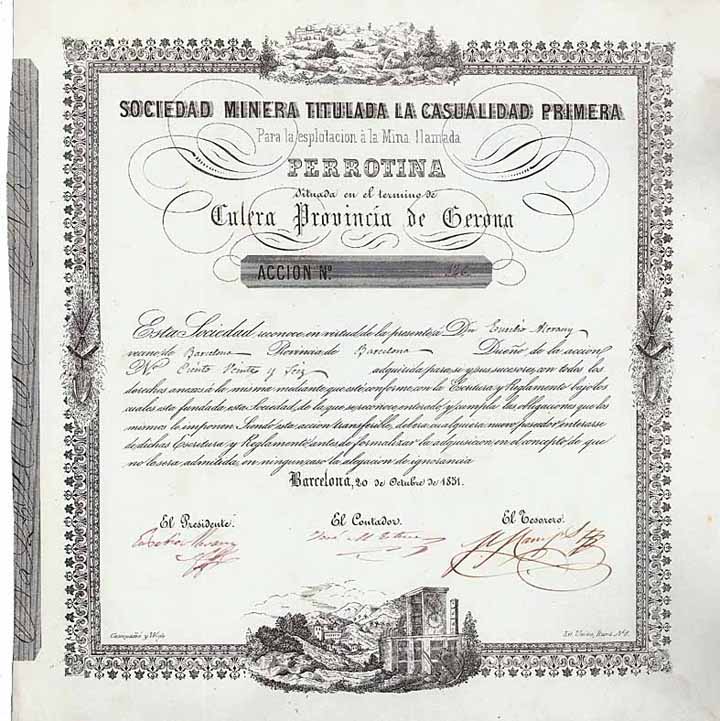 SOCIEDAD MINERA TITULADA LA CASUALIDAD PRIMERA
Para la esplotacion à la Mina llamada
PERROTINA
Situada en el termino de
Culera Provincia de Gerona
ACCION Nº. 126
Esta Sociedad reconoce en virtud de la presente a Dn. Emilio
vecino de Barcelona Provincia de Barcelona Dueño de la accion
Nº Ciento Veinte y Seis adquirida para se y sus sucesores, con todos los
derechos anexos à la misma mediante que esté conforme con la Escritura y Reglamento bajo los
cuales esta fundada esta Sociedad, de la que se reconoce enterado, y cumpla las obligaciones que los
mismos le imponen Siendo esta accion transferible, debera cualquiera nuevo poseedor enterarse
de dichas Escritura y Reglamento antes de formalizar la adquisicion en el concepto de que
no la sera admitida en ningun caso la alegacion de ignorancia
Barcelona, 20 de Octubre de 1851.
El Presidente. El Contador. El Tesorero.
José M.
Campañá y